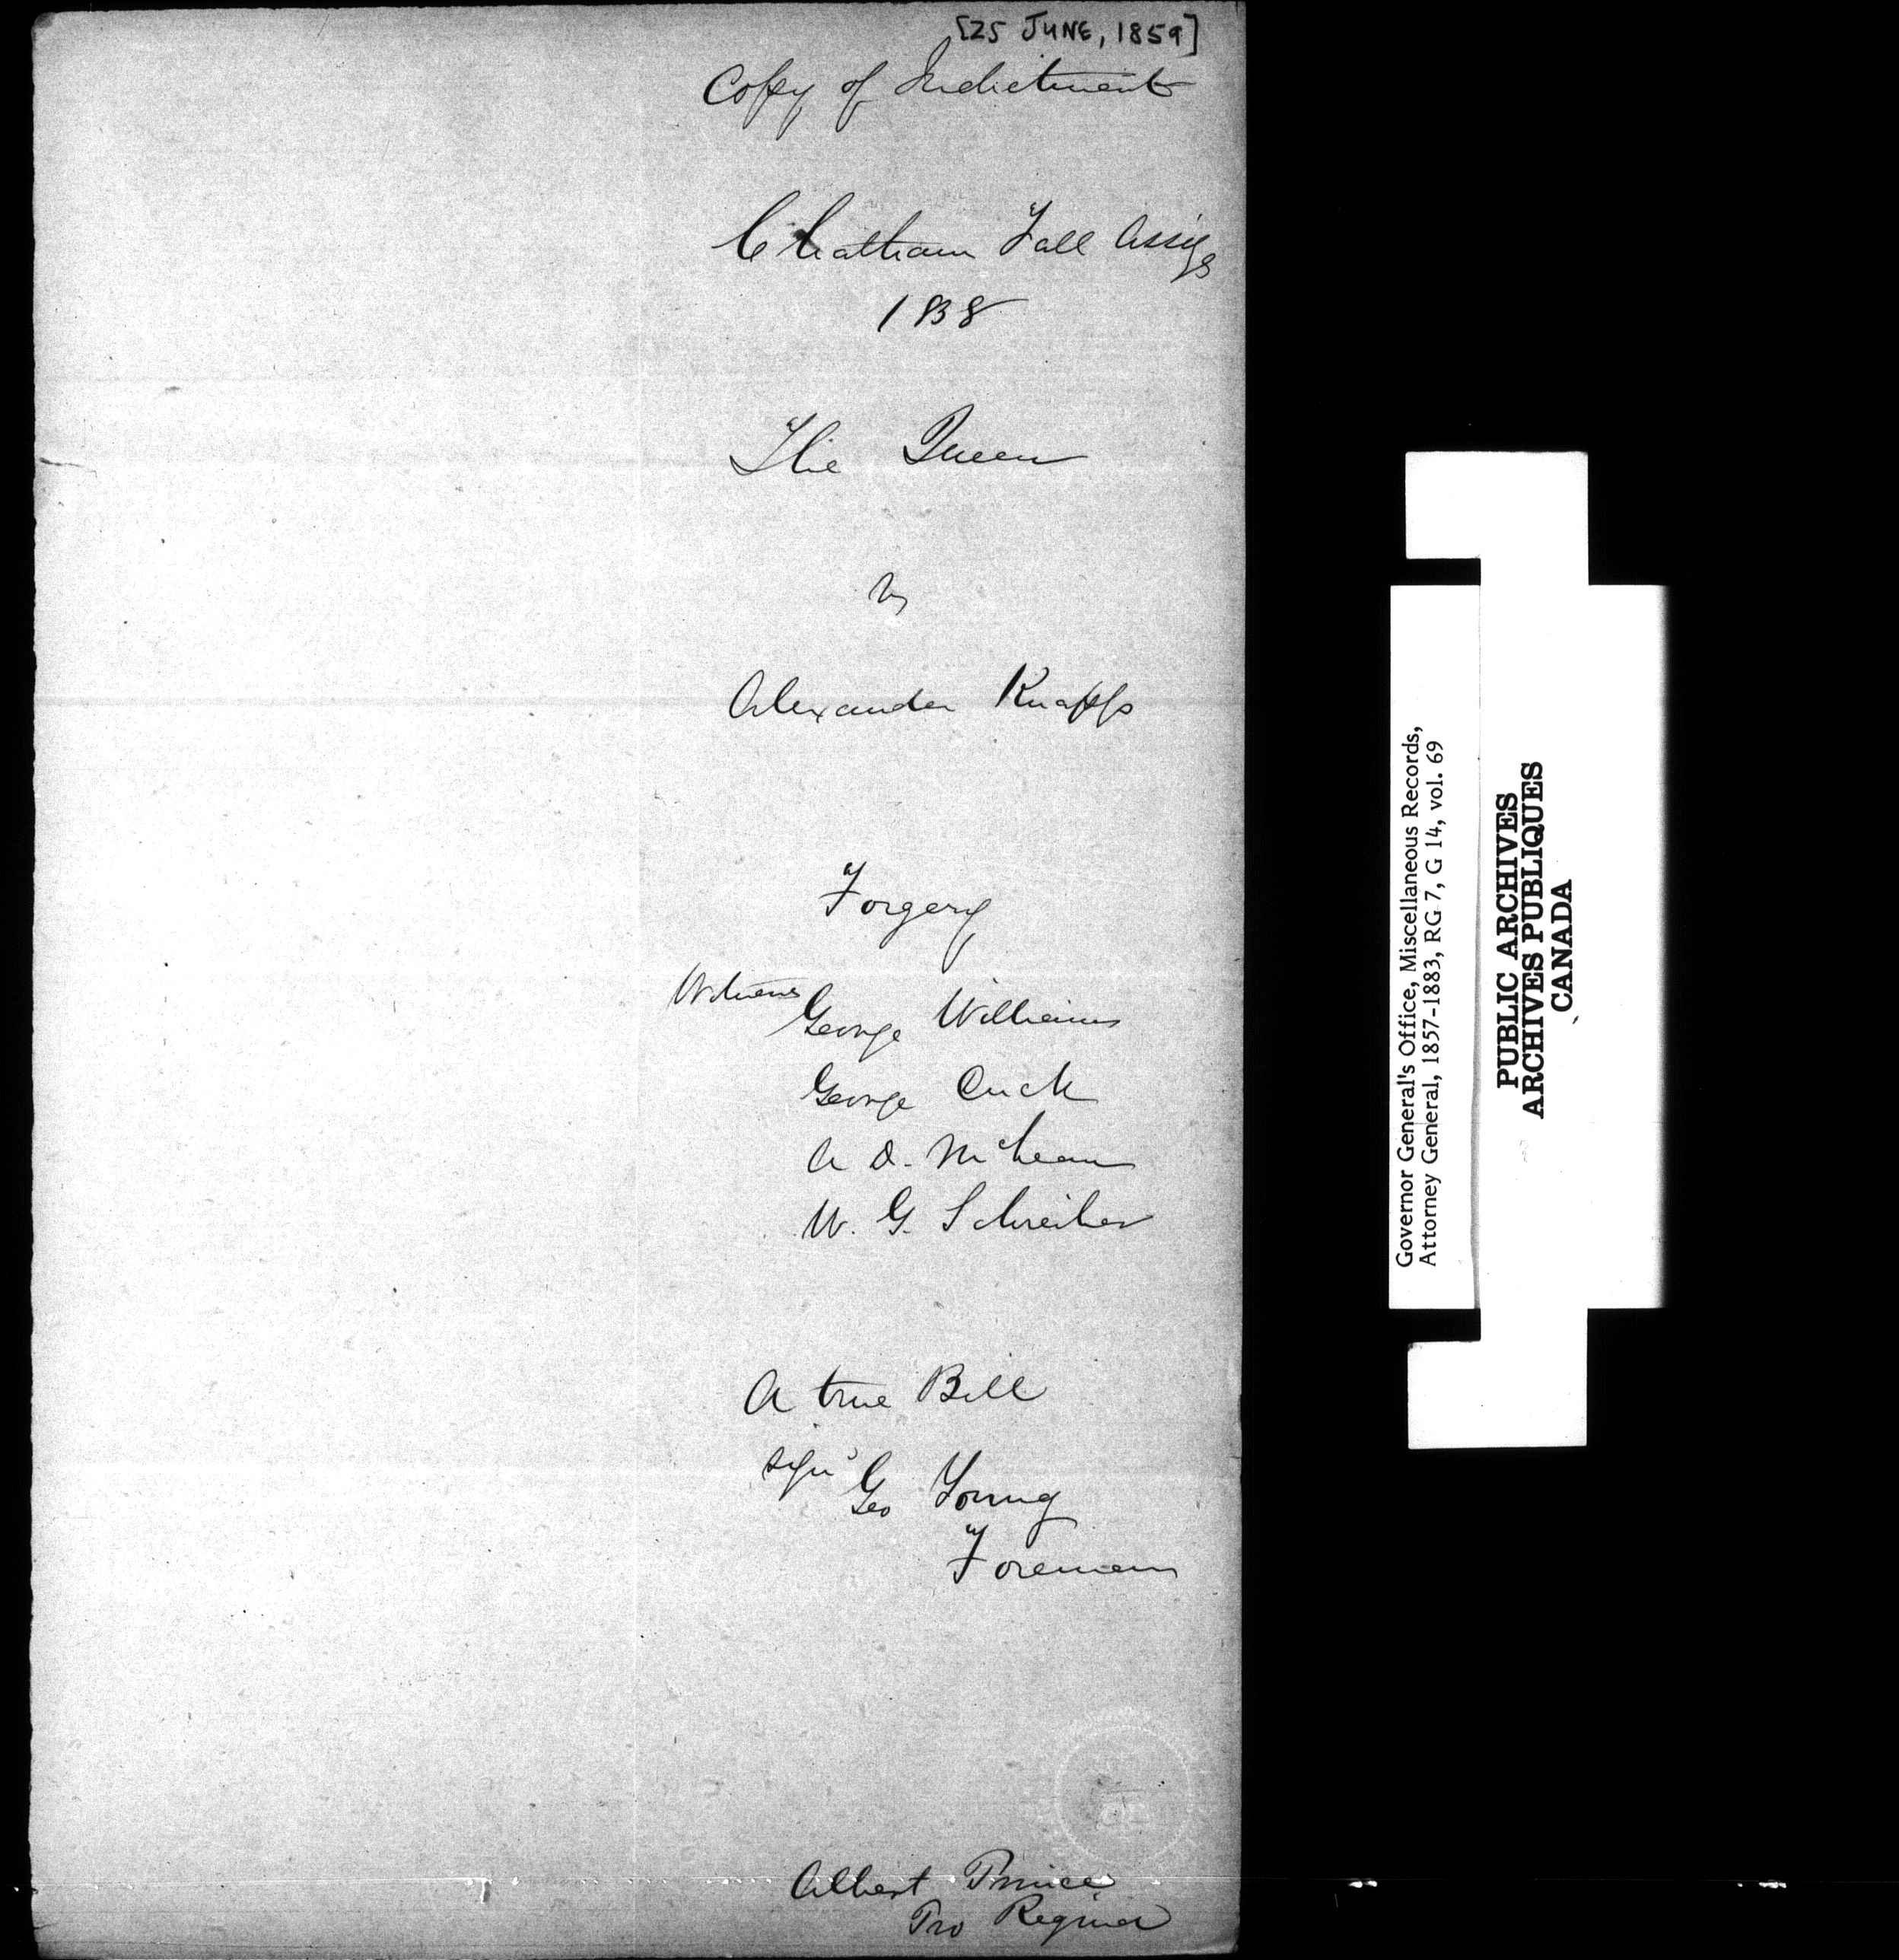 [25 JUNE, 1859]
Copy of Indictment
Chatham Fall Assizs
1858
The Queen
vs
Alexander Knapp
Forgery
Witness
George Williams
George Cuck
A D. McLean
W. G. Schreiber
A true Bill
Geo Young
Foreman
Albert Prince
Pro Regina
Governor General's Office, Miscellaneous Records,
Attorney General, 1857-1883, RG 7, G 14, vol. 69
PUBLIC ARCHIVES
ARCHIVES PUBLIQUES
CANADA